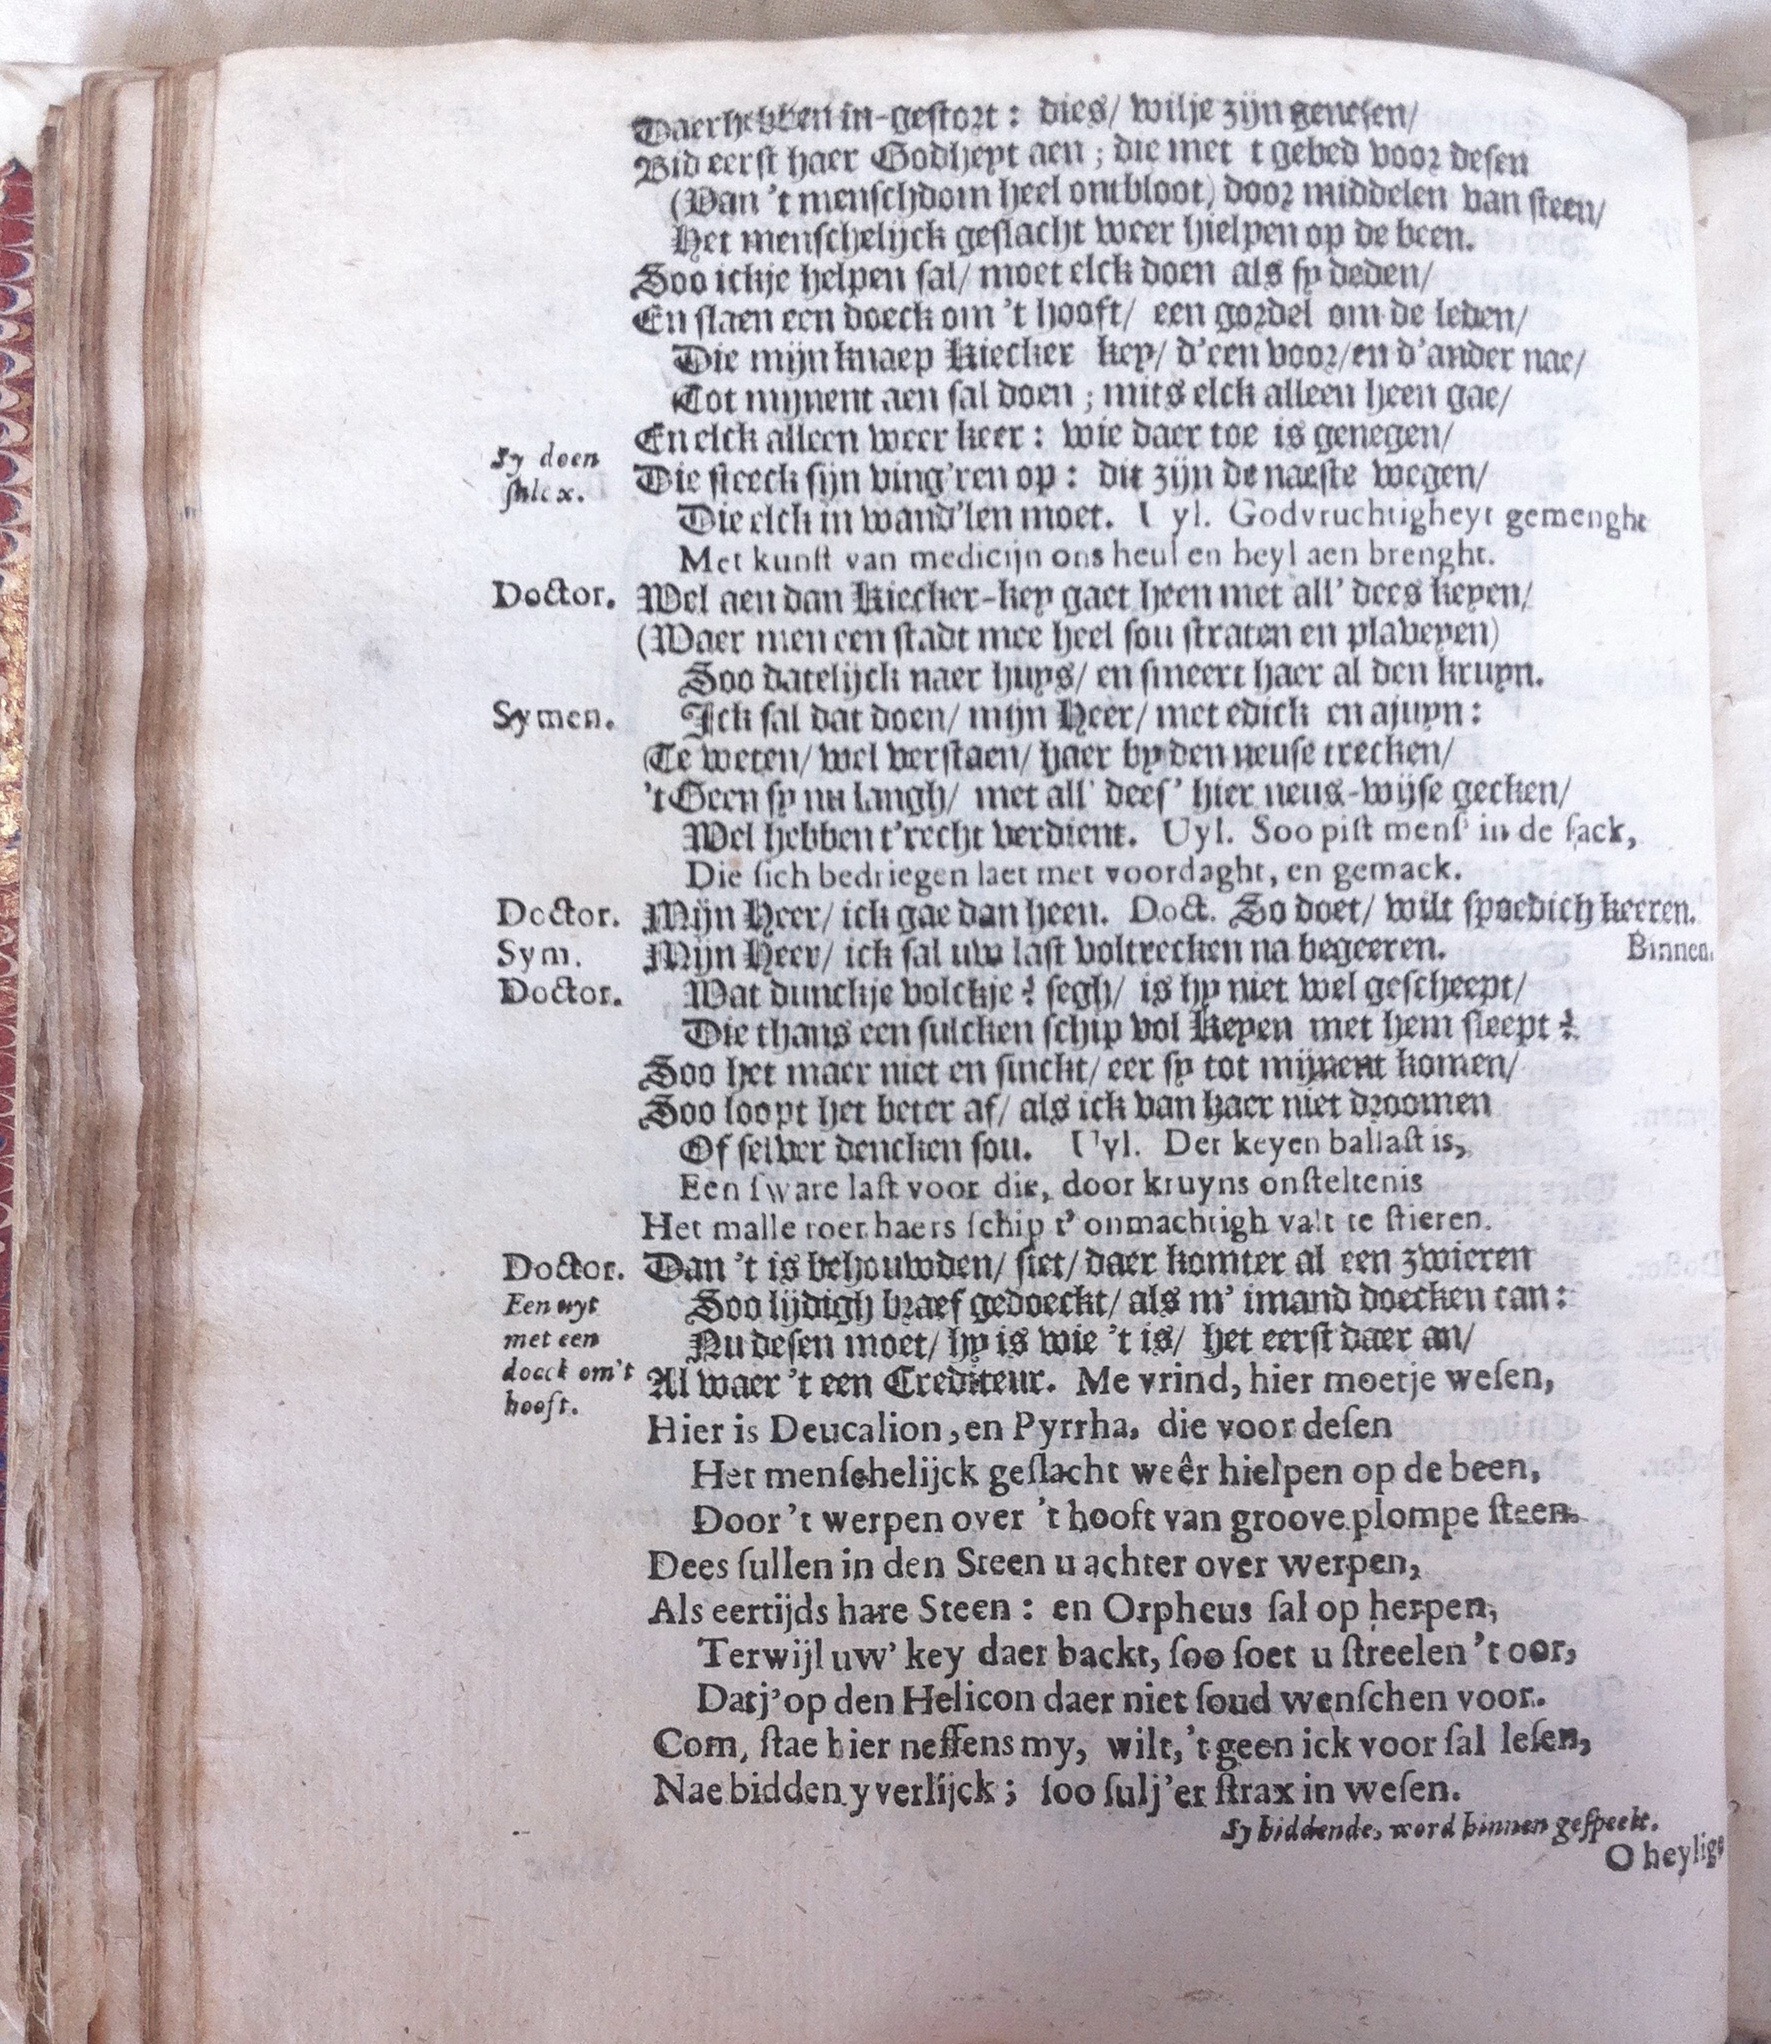 Daer hebben in-gestort: dies/ wilje zijn genesen/
Bid eerst haer Godheyt aen; die met t gebed voor desen
(Van 't menschdom heel ontbloot) door middelen van steen/
Het menschelijck geslacht weer hielpen op de been.
Soo ickje helpen sal/ moet elck doen als sy deden/
En slaen een doeck om 't hooft/ een gordel om de leden/
Die mijn knaep Kiecker key/ d'een voor/en d'ander nae/
Tot mijnent aen sal doen; mits elck alleen heen gae/
En elck alleen weer keer: wie daer toe is genegen/
Sy doen
Die steeck sijn ving'ren op: dit zijn de naeste wegen/
Die elck in wand'len moet. Uyl. Godvruchtigheyt gemenght
Met kunst van medicijn ons heul en heyl aen brenght.
Doctor. Wel aen dan Kiecker-key gaet heen met all' dees keyen/
(Waer men een stadt mee heel sou straten en plaveyen)
Soo datelijck naer huys/ en smeert haer al den kruyn.
Symen. Ick sal dat doen/ mijn Heer/ met edick en ajuyn:
(Te weten/ wel verstaen/ haer by den neuse trecken/
't Geen sy nu langh/ met all' dees' hier neus-wijse gecken/
Wel hebben t'recht verdient. Uyl. Soo pist mens' in de sack,
Die sich bedriegen laet met voordaght, en gemack.
Doctor. Mijn Heer/ ick gae dan heen. Doct. So doet/ wilt spoedich keeren.
Sym. Mijn Heer/ ick sal uw last voltrecken na begeeren. Binnen.
Doctor. Wat dunckje volckje? segh/ is hy niet wel gescheept/
Die thans een sulcken schip vol Keyen met hem sleept?
Soo het maer niet en sinckt/ eer sy tot mijnent komen/
Soo loopt het beter af/ als ick van haer niet droomen
Of selver dencken sou. Uyl. Der keyen ballast is,
Een sware last voor die, door kruyns onsteltenis
Het malle roer haers schip t' onmachtigh valt te stieren.
Doctor. Dan 't is behouwden/ siet/ daer komter al een zwieren
Een uyt
Soo lijdigh braef gedoeckt/ als m' imand doecken can:
met een
Nu desen moet/ hy is wie 't is/ het eerst daer an/
doeck om't
Al waer 't een Crediteur. Me vrind, hier moetje wesen,
hooft.
Hier is Deucalion, en Pyrrha, die voor desen
Het menschelijck geslacht weêr hielpen op de been,
Door 't werpen over 't hooft van groove plompe steen.
Dees sullen in den Steen u achter over werpen,
Als eertijds hare Steen: en Orpheus sal op herpen,
Terwijl uw' key daer backt, soo soet u streelen 't oor,
Datj' op den Helicon daer niet soud wenschen voor.
Com, stae hier neffens my, wilt, 't geen ick voor sal lesen,
Nae bidden yverlijck; soo sulj'er strax in wesen.
Sy biddende, word binnen gespeelt.
O heylige